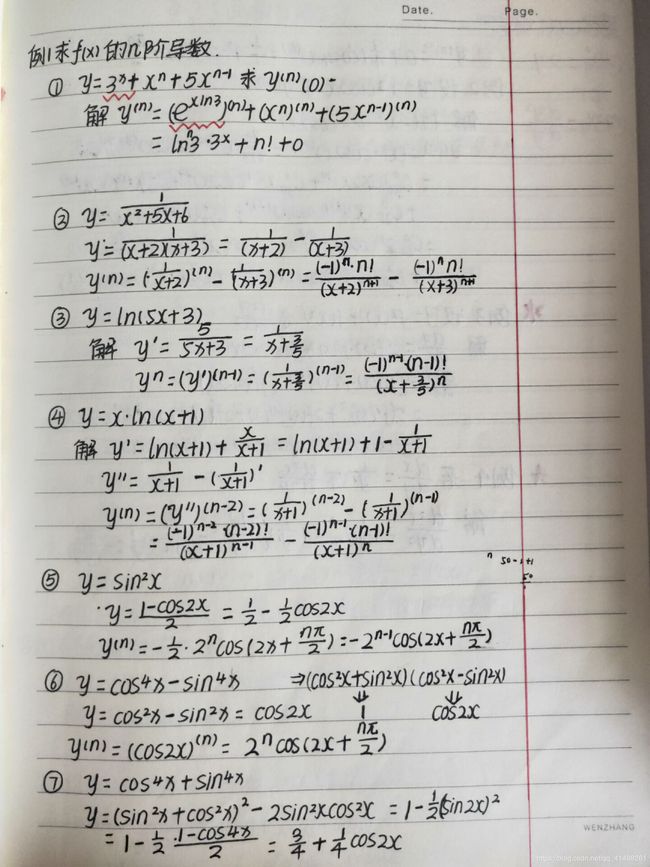 Date. Page.
例1 求f(x)的n阶导数.
① y=3ˣ+xⁿ+5xⁿ⁻¹ 求 y⁽ⁿ⁾(0)
解 y⁽ⁿ⁾=(e^{xln3})⁽ⁿ⁾+(xⁿ)⁽ⁿ⁾+(5xⁿ⁻¹)⁽ⁿ⁾
= lnⁿ3·3ˣ+n!+0
② y= 1/(x²+5x+6)
y= 1/((x+2)(x+3)) = 1/(x+2) - 1/(x+3)
y⁽ⁿ⁾=(1/(x+2))⁽ⁿ⁾-(1/(x+3))⁽ⁿ⁾= (-1)ⁿ·n!/(x+2)ⁿ⁺¹ - (-1)ⁿn!/(x+3)ⁿ⁺¹
③ y=ln(5x+3)
解 y'= 5/(5x+3) = 1/(x+3/5)
yⁿ=(y')⁽ⁿ⁻¹⁾=(1/(x+3/5))⁽ⁿ⁻¹⁾= (-1)ⁿ⁻¹·(n-1)!/(x+3/5)ⁿ
④ y=x·ln(x+1)
解 y'=ln(x+1)+ x/(x+1) = ln(x+1)+1- 1/(x+1)
y''= 1/(x+1) -(1/(x+1))'
y⁽ⁿ⁾=(y'')⁽ⁿ⁻²⁾=(1/(x+1))⁽ⁿ⁻²⁾-(1/(x+1))⁽ⁿ⁻¹⁾
= (-1)ⁿ⁻²·(n-2)!/(x+1)ⁿ⁻¹ - (-1)ⁿ⁻¹·(n-1)!/(x+1)ⁿ
⑤ y=sin²x
y= (1-cos2x)/2 = 1/2 - 1/2cos2x
y⁽ⁿ⁾=-1/2·2ⁿcos(2x+nπ/2)=-2ⁿ⁻¹cos(2x+nπ/2)
⑥ y=cos⁴x-sin⁴x ⇒(cos²x+sin²x)(cos²x-sin²x)
y=cos²x-sin²x=cos2x 1 cos2x
y⁽ⁿ⁾=(cos2x)⁽ⁿ⁾= 2ⁿcos(2x+nπ/2)
⑦ y=cos⁴x+sin⁴x
y=(sin²x+cos²x)²-2sin²xcos²x =1-1/2(sin2x)²
=1-1/2·(1-cos4x)/2 = 3/4+1/4cos2x
WENZHANG